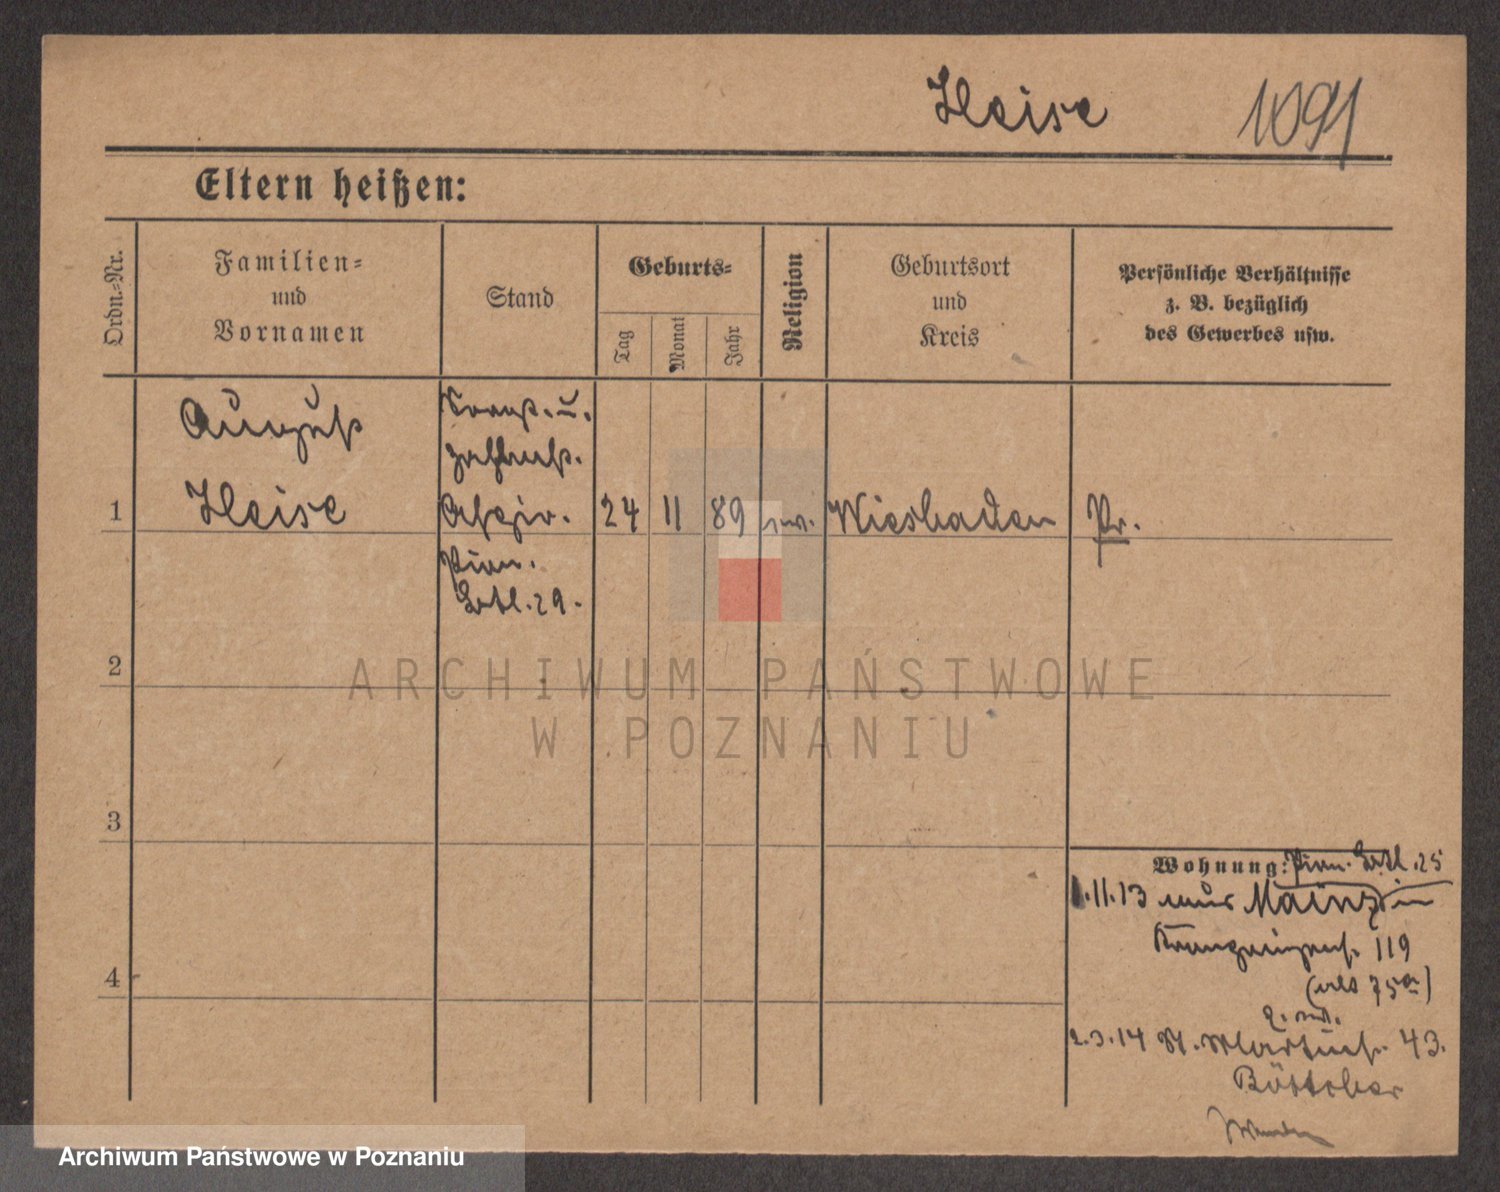 Heise 1091
Eltern heißen:
Ordn.-Nr.
Familien-
und
Vornamen
Stand
Geburts-
Tag
Monat
Jahr
Religion
Geburtsort
und
Kreis
Persönliche Verhältnisse
z. B. bezüglich
des Gewerbes usw.
August
Heise
1
24 11 89
Wiesbaden
Pr.
29.
2
3
4
Wohnung: 25
1.11.13 aus Mainz in
119
(als 75a)
2.3.14 St. Martinst. 43.
Böttcher
ARCHIWUM PAŃSTWOWE
W POZNANIU
Archiwum Państwowe w Poznaniu